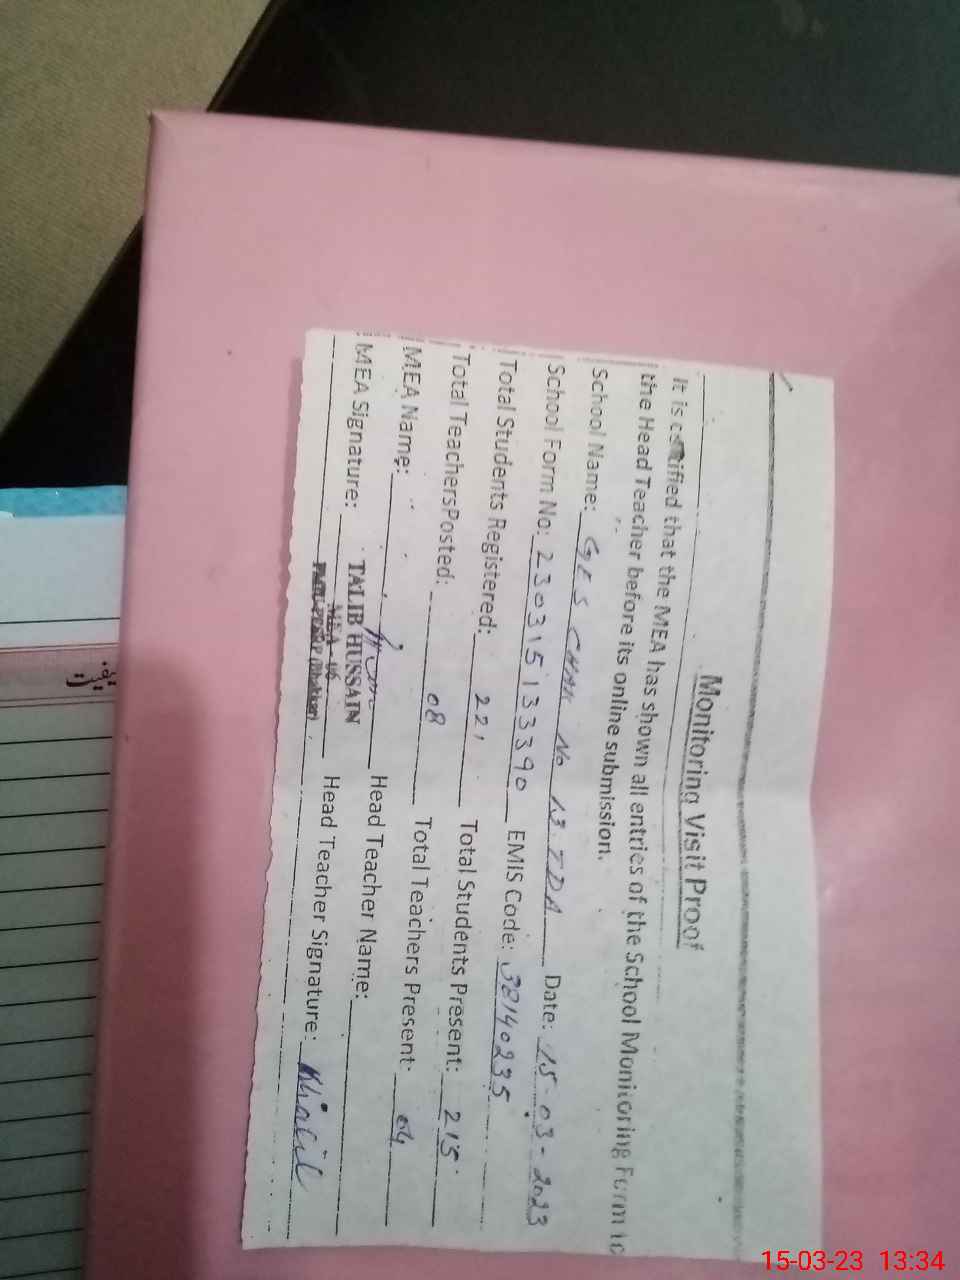 Monitoring Visit Proof
It is certified that the MEA has shown all entries of the School Monitoring Form to
the Head Teacher before its online submission.
School Name: GES CHAK No 13 TDA Date: 15-03-2023
School Form No: 230315133390 EMIS Code: 38140235
Total Students Registered: 221 Total Students Present: 215
Total TeachersPosted: 08 Total Teachers Present: 04
MEA Name: Head Teacher Name:
MEA Signature: Head Teacher Signature: Khalil
TALIB HUSSAIN
MEA 06
15-03-23 13:34